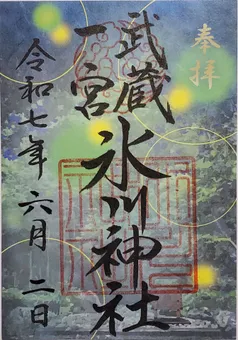 奉拝
武蔵
一宮
氷川神社
令和七年 六月 二日